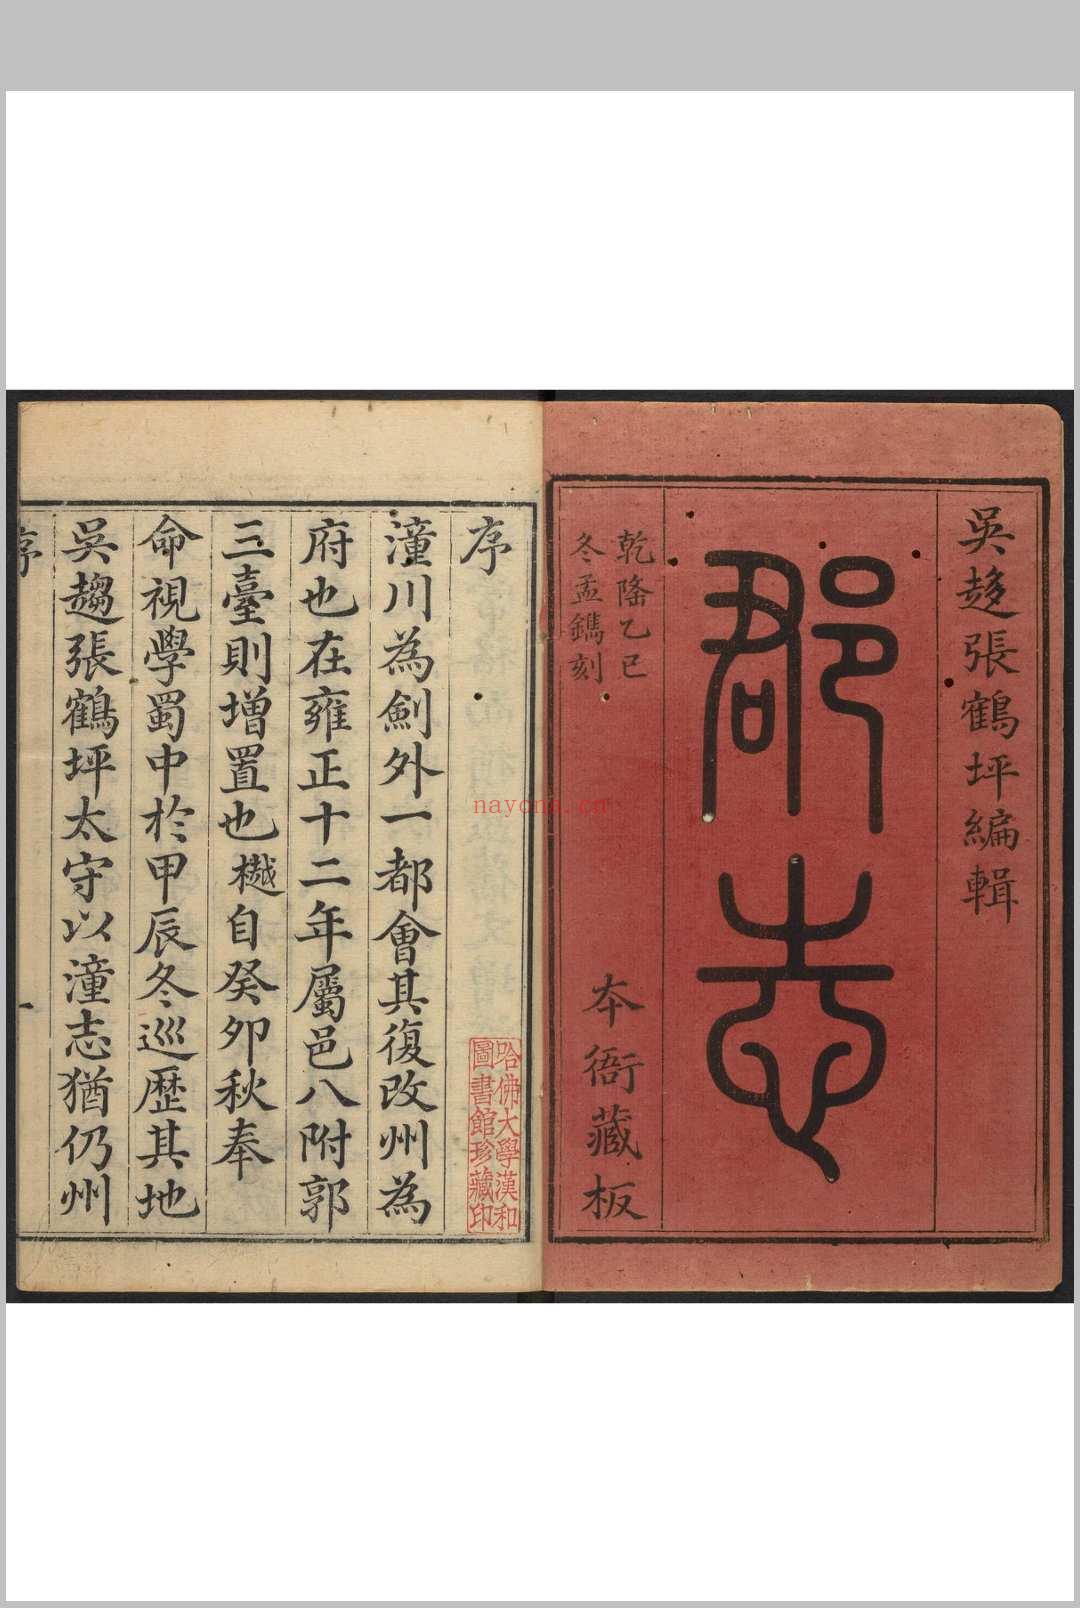 吳趍張鶴坪編輯
郡志
乾隆乙巳
冬孟鐫刻
本衙藏板
序
潼川為劍外一都會其復改州為
府也在雍正十二年屬邑八附郭
三臺則增置也樾自癸卯秋奉
命視學蜀中於甲辰冬巡歷其地
吳趨張鶴坪太守以潼志猶仍州
序
哈佛大學漢和
圖書館珍藏印
nayona.cn